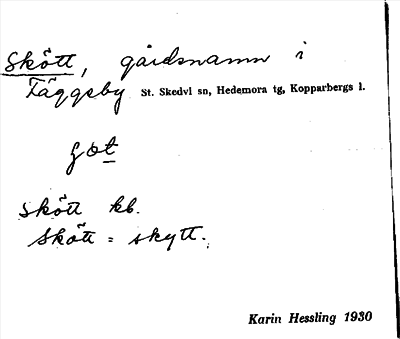 Skött, gårdsnamn i
Täggsby St. Skedvi sn, Hedemora tg, Kopparbergs l.
Skött kb.
Skött = skytt.
Karin Hessling 1930